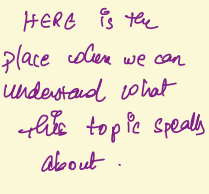 HERE is the
place where we can
understand what
this topic speaks
about.